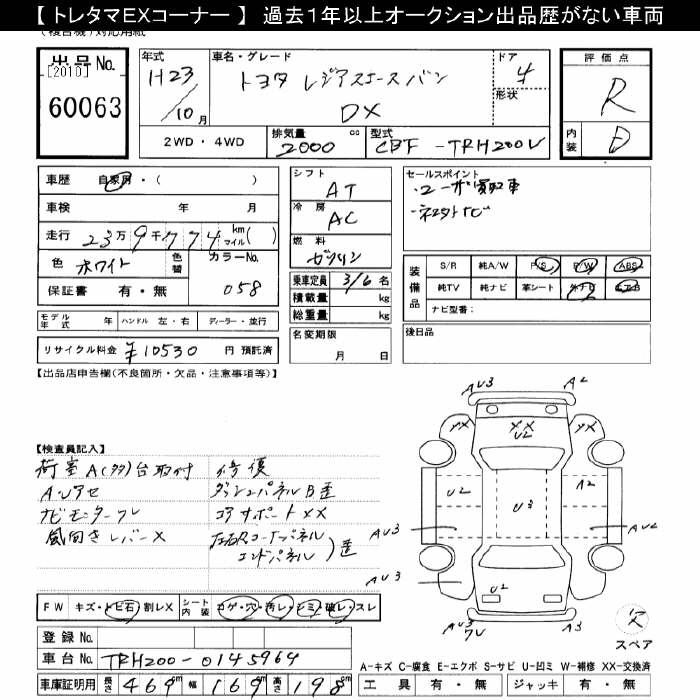 【 トレタマEXコーナー 】 過去1年以上オークション出品歴がない車両
出品No.
[2010]
60063
年式
H23
/10月
車名・グレード
トヨタ レジアスエースバン
DX
ドア
4
形状
2WD・4WD
排気量
2000 cc
型式
CBF-TRH200V
評価点
R
内装
D
車歴 自家用・( )
車検 年 月
走行 23万9千774 km マイル( )
色 ホワイト 色替 カラーNo.
保証書 有・無 058
モデル年式 年 ハンドル 左・右 ディーラー・並行
リサイクル料金 ¥10530 円 預託済
シフト
AT
冷房
AC
燃料
ガソリン
乗車定員 3/6 名
積載量 kg
総重量 kg
名変期限
月 日
セールスポイント
・ユーザー買取車
装備品
S/R 純A/W P/S P/W ABS
純TV 純ナビ 革シート 外ナビ エアB
ナビ型番:
後日品
【出品店申告欄(不良箇所・欠品・注意事項等)】
【検査員記入】
荷室A(多)台取付
A・Uアセ
ナビモニターワレ
風向きレバーX
修復
ダッシュパネルB歪
コアサポートXX
左右Rコーナーパネル
エンドパネル
)歪
FW キズ・トビ石・割レX シート内装 コゲ・穴・汚レ・シミ・破レ・スレ
登録No.
車台No. TRH200-0145964
車庫証明用 長さ 469cm 幅 169cm 高さ 198cm
AU3
A2
YX
XX
U2
YX
U2
U3
A2
AU3
AU2
AU3
U2
AU3
AU3
ワレ
A3
欠
スペア
A-キズ C-腐食 E-エクボ S-サビ U-凹ミ W-補修 XX-交換済
工具 有・無 ジャッキ 有・無